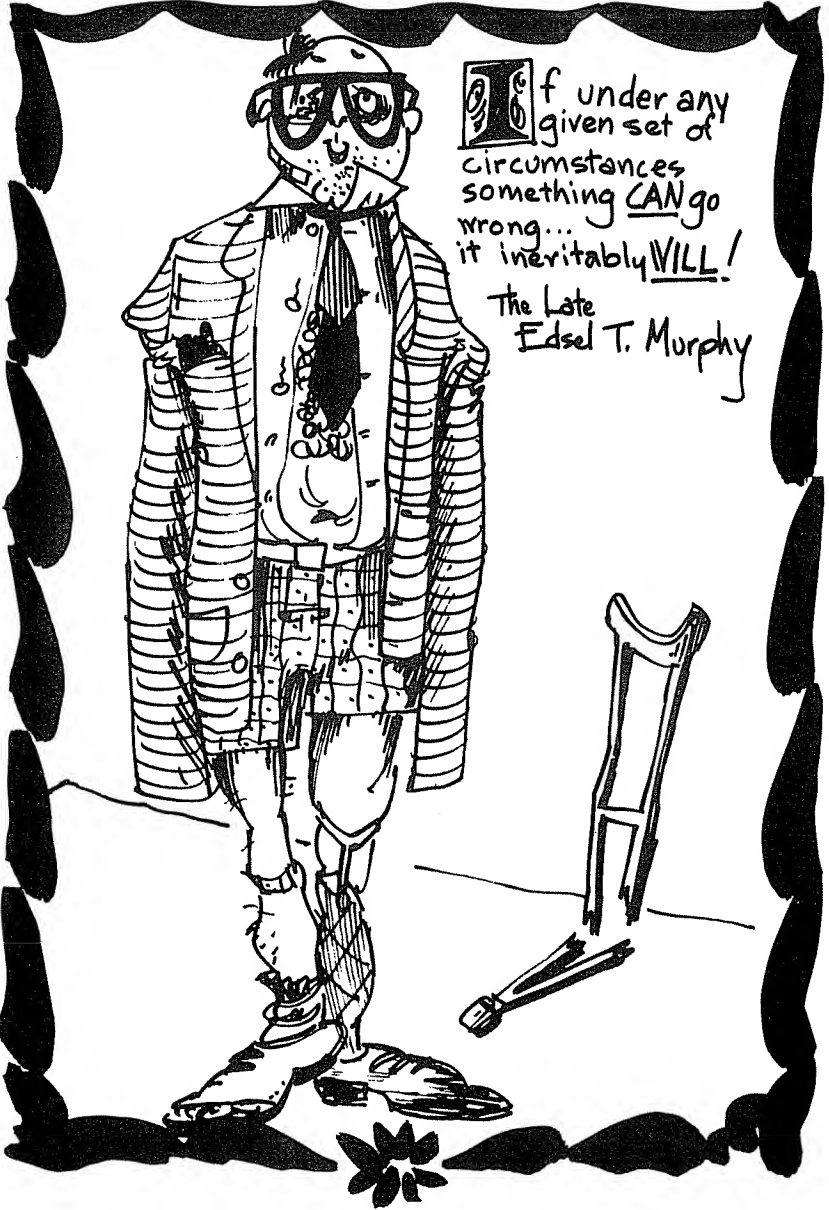 If under any
given set of
circumstances
something CAN go
wrong...
it ineritably WILL!
The Late
Edsel T. Murphy